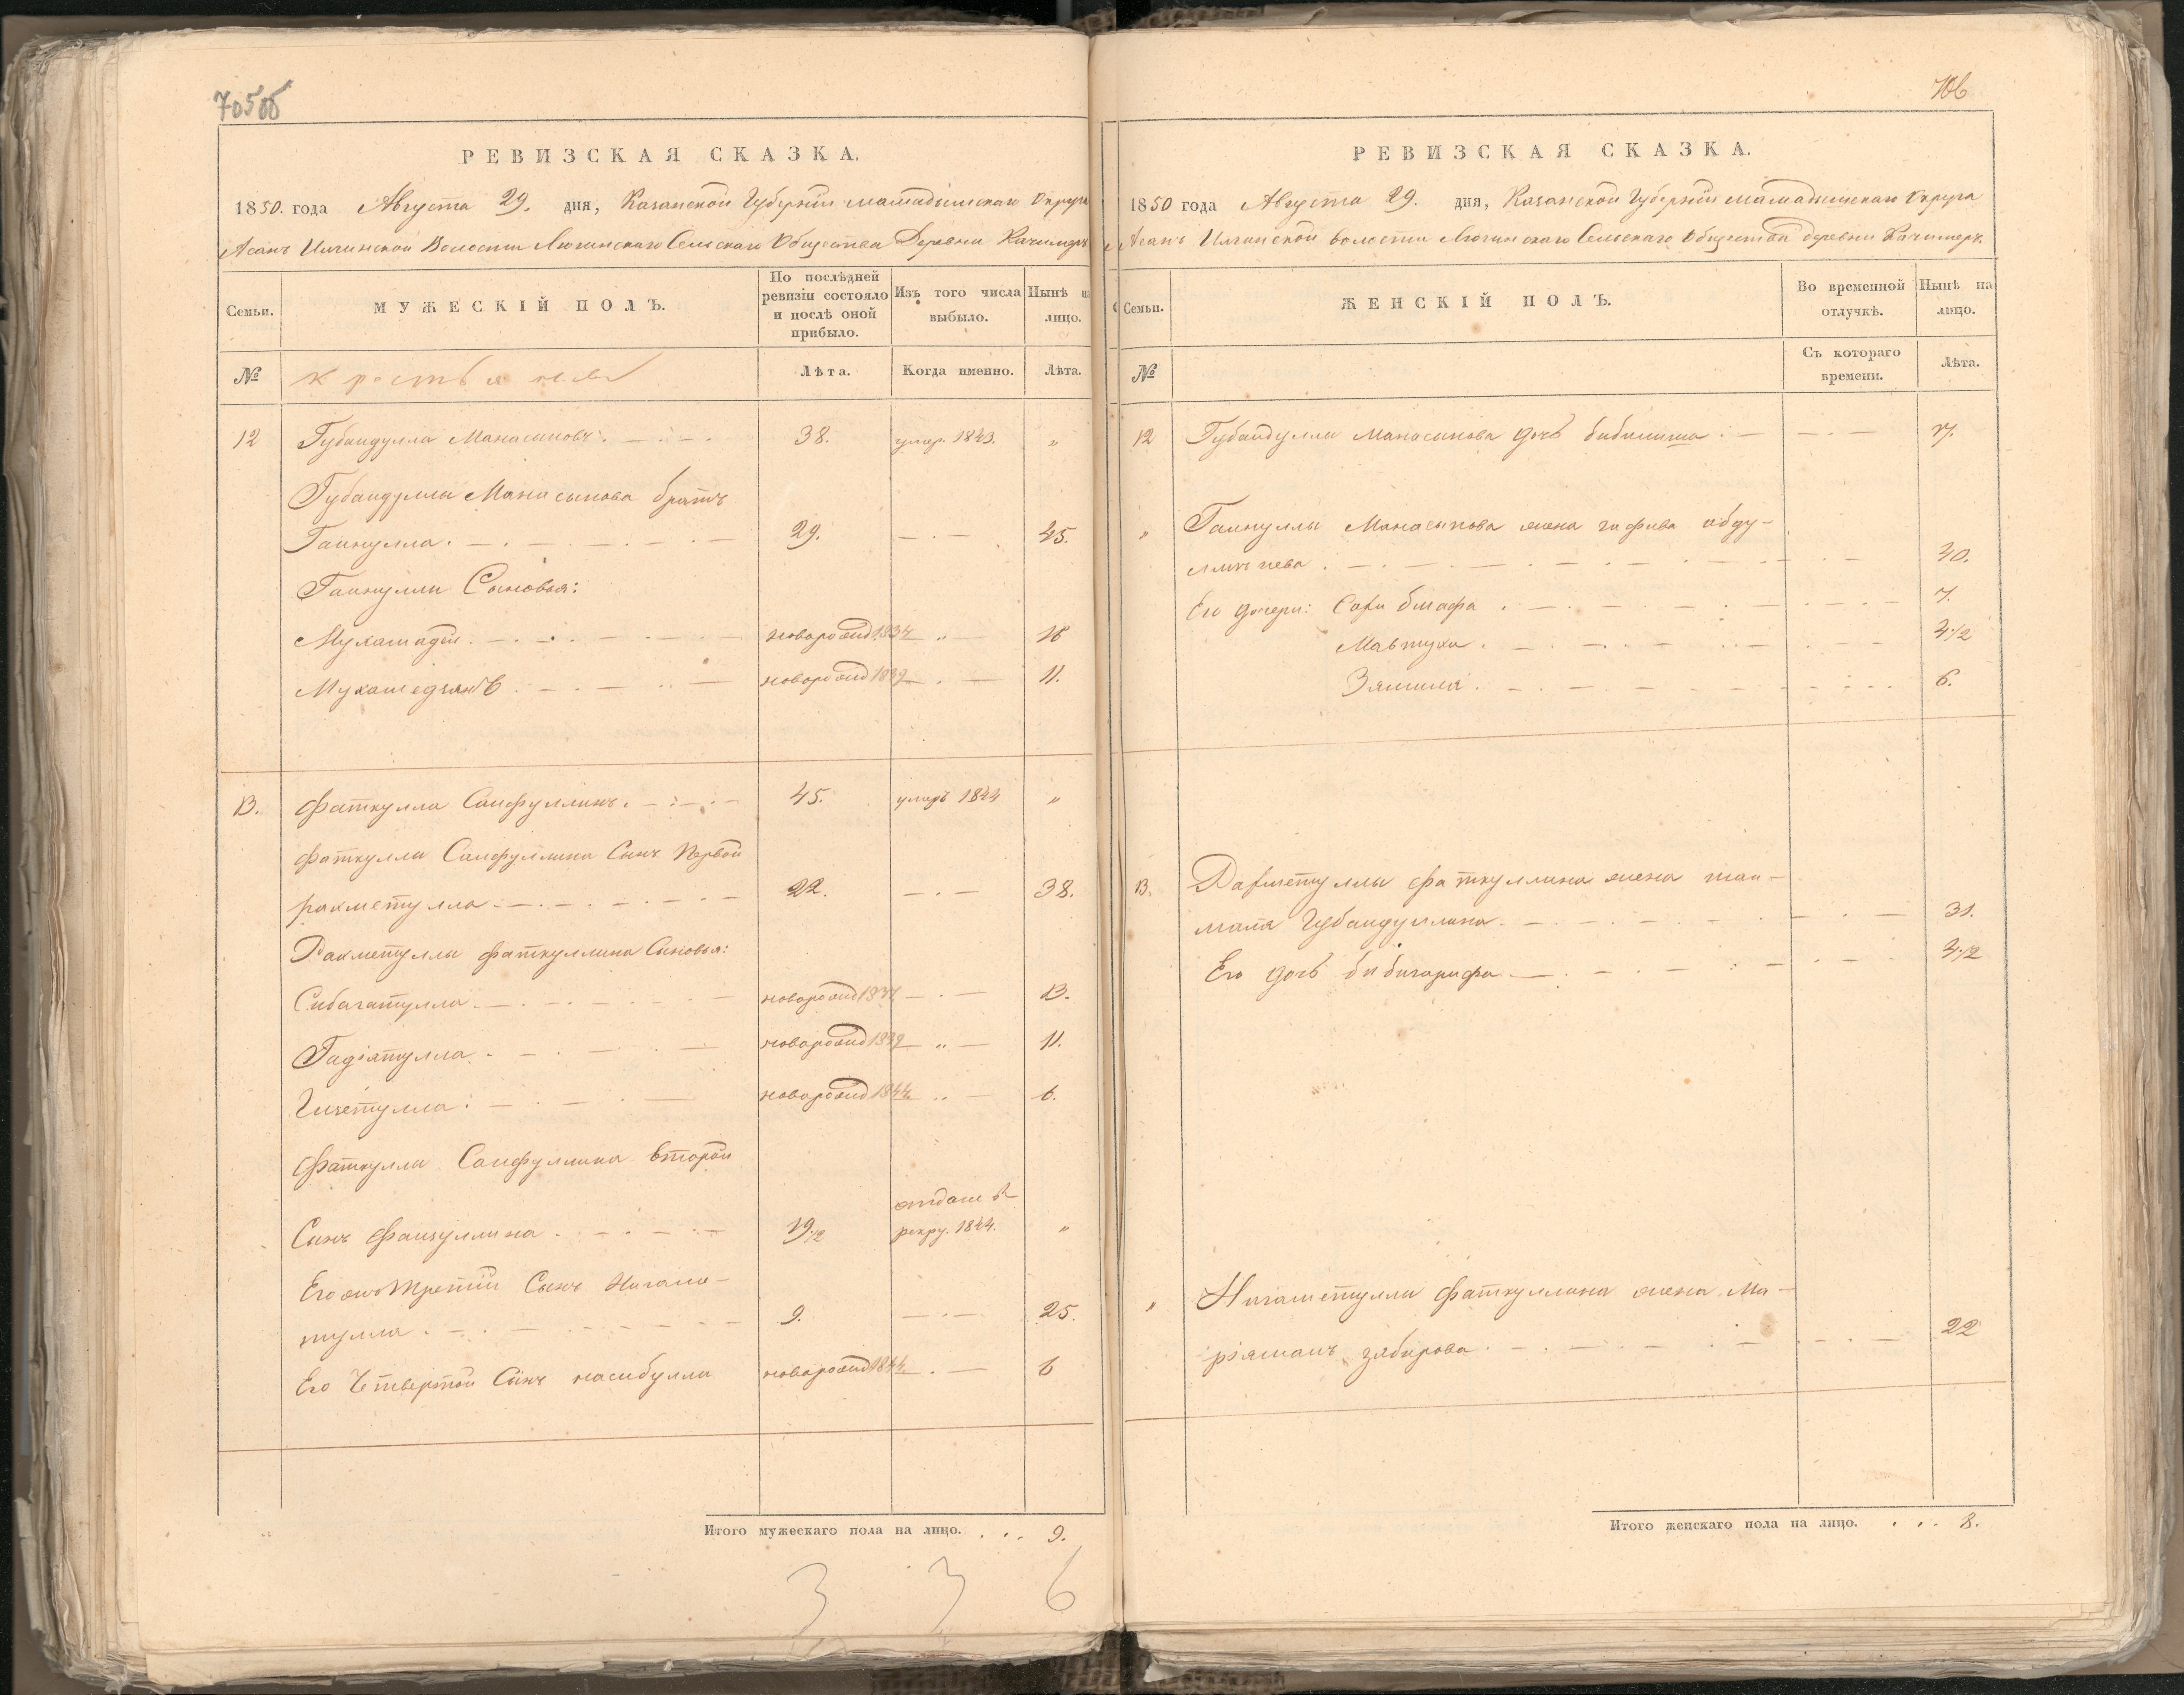 705об
РЕВИЗСКАЯ СКАЗКА.
1850. года Августа 29. дня, Казанской Губернии мамадышскаго округа
Асанъ Илгинской Волости Люгинскаго Сельскаго Общества Деревни Качимеръ
Семьи.
МУЖЕСКІЙ ПОЛЪ.
По послѣдней ревизіи состояло и послѣ оной прибыло.
Изъ того числа выбыло.
Нынѣ на лицо.
№
крестьяне
Лѣта.
Когда именно.
Лѣта.
12 Губайдулла Манасыповъ. 38. умер. 1843. "
Губайдуллы Манасыпова братъ
Гайнулла. 29. 45.
Гайнуллы Сыновья:
Мухамадъи новорожд 1834 " 16
Мухамедзянъ новорожд 1839 11.
13. Фаткулла Сайфуллинъ. 45. умеръ 1844 "
Фаткуллы Сайфуллина Сынъ Первой
рахметулла 22. 38.
Рахметуллы Фаткуллина Сыновья:
Сибагатулла новорожд 1837 13.
Гадіятулла новорожд 1839 " 11.
новорожд 1844 " 6.
Фаткуллы Сайфуллина второй
отданъ в
Сынъ Файзуллина 19 1/2 рекру. 1844. "
Его же Третій Сынъ Нигама-
тулла 9. 25.
Его Четвертой Сынъ насибулла новорожд 1844 6
Итого мужескаго пола на лицо. 9.
3 3 6
706
РЕВИЗСКАЯ СКАЗКА.
1850 года Августа 29. дня, Казанской Губернии мамадышскаго округа
Асанъ Илгинской волости Люгинскаго Сельскаго Общества деревни Качимеръ.
Семьи.
ЖЕНСКІЙ ПОЛЪ.
Во временной отлучкѣ.
Нынѣ на лицо.
№
Съ котораго времени.
Лѣта.
12 Губайдуллы Манасыпова дочь 7.
" Гайнуллы Манасыпова жена гафива абду-
40.
Его дочери: 7.
Мавтуха 4 1/2
Зямиля 6.
13. Рахметуллы фаткуллина жена
маля Губайдуллина 31.
Его дочь бибигарифа 4 1/2
" Нигаметуллы Фаткуллина жена Ма-
ріяманъ зябирова 22
Итого женскаго пола на лицо. 8.